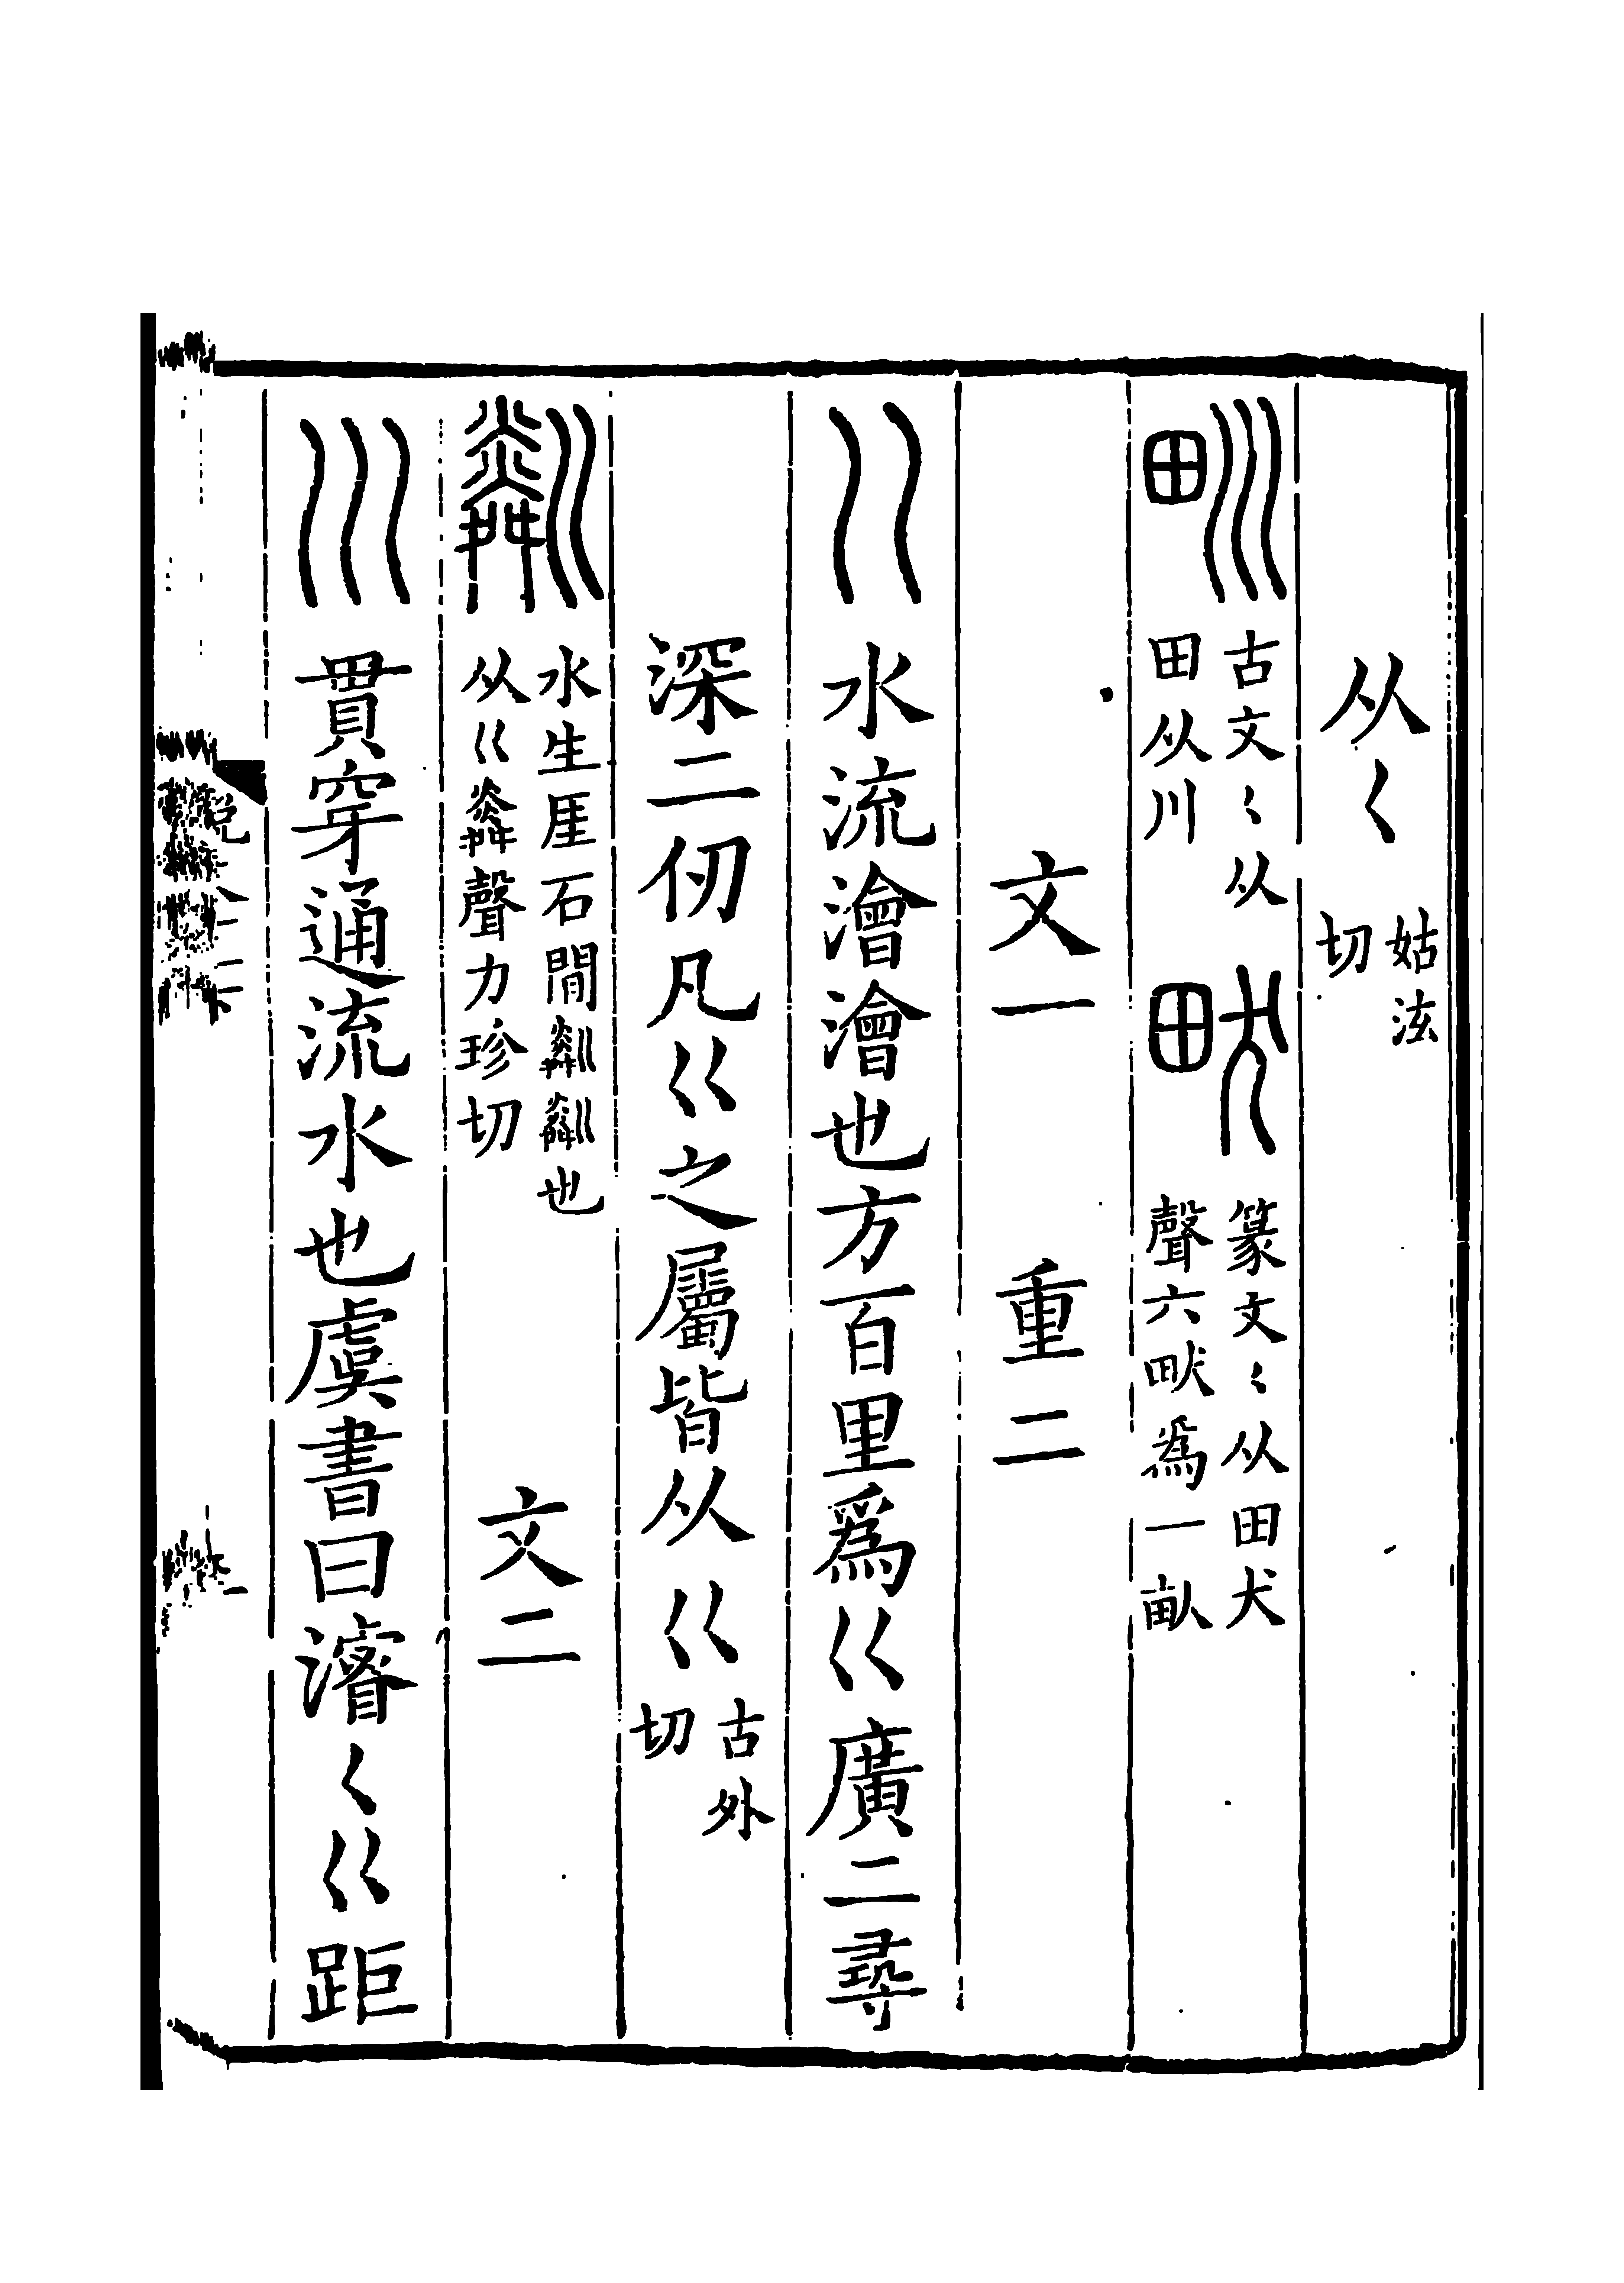 从〈 姑泫切
甽 古文〈从田从川 畎 篆文〈从田犬聲六畎為一畝
文一 重二
巜 水流澮澮也方百里爲巜廣二尋
深二仞凡巜之屬皆从巜 古外切
粼 水生厓石閒粼粼也从巜粦聲力珍切 文二
川 貫穿通流水也虞書曰濬〈巜距